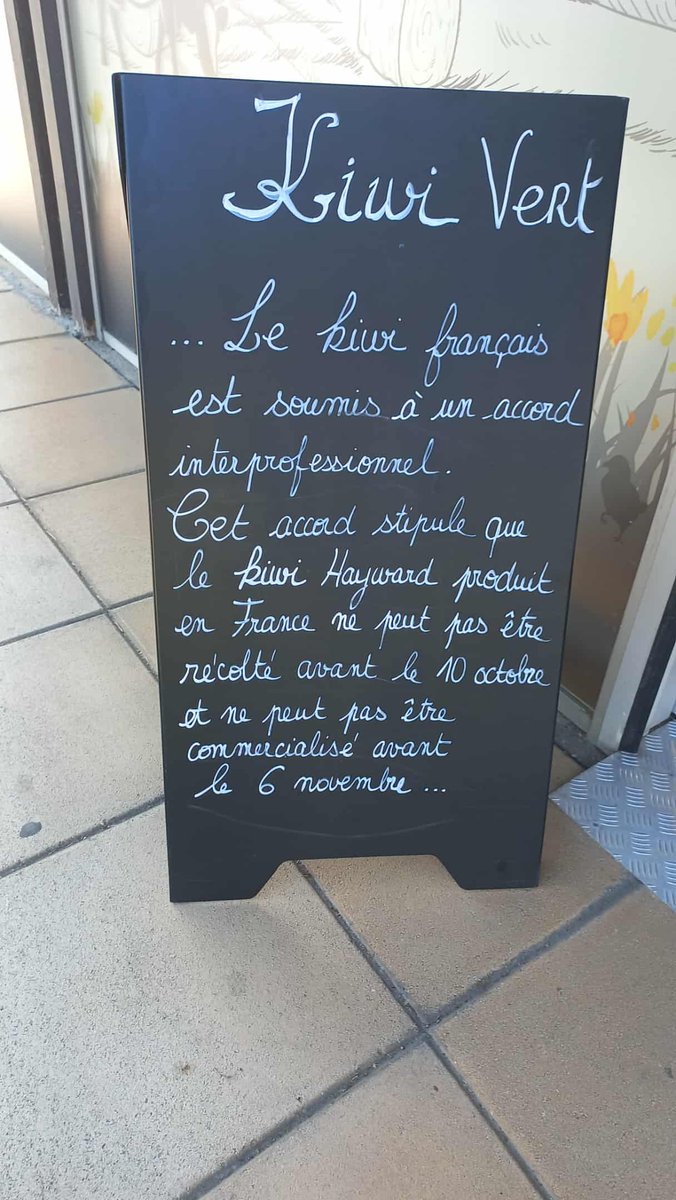 Kiwi Vert
... Le kiwi français
est soumis à un accord
interprofessionnel.
Cet accord stipule que
le kiwi Hayward produit
en France ne peut pas être
récolté avant le 10 octobre
et ne peut pas être
commercialisé avant
le 6 novembre ...